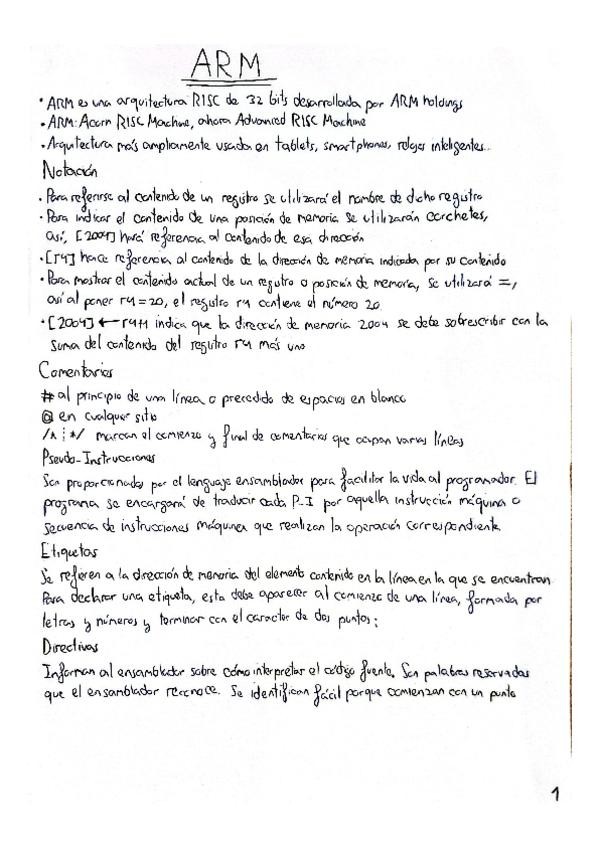 ARM
· ARM es una arquitectura RISC de 32 bits desarrollada por ARM holdings
· ARM: Acorn RISC Machine, ahora Advanced RISC Machine
· Arquitectura más ampliamente usada en tablets, smartphones, relojes inteligentes...
Notación
· Para referirse al contenido de un registro se utilizará el nombre de dicho registro
· Para indicar el contenido de una posición de memoria se utilizarán corchetes,
así, [2004] hará referencia al contenido de esa dirección
· [r4] hace referencia al contenido de la dirección de memoria indicada por su contenido
· Para mostrar el contenido actual de un registro o posición de memoria, se utilizará =,
así al poner r4=20, el registro r4 contiene el número 20
· [2004] ← r4+1 indica que la dirección de memoria 2004 se debe sobrescribir con la
suma del contenido del registro r4 más uno
Comentarios
# al principio de una línea o precedido de espacios en blanco
@ en cualquier sitio
/* ¦ */ marcan el comienzo y final de comentarios que ocupan varias líneas
Pseudo-Instrucciones
Son proporcionadas por el lenguaje ensamblador para facilitar la vida al programador. El
programa se encargará de traducir cada P-I por aquella instrucción máquina o
secuencia de instrucciones máquina que realizan la operación correspondiente
Etiquetas
Se refieren a la dirección de memoria del elemento contenido en la línea en la que se encuentran.
Para declarar una etiqueta, esta debe aparecer al comienzo de una línea, formada por
letras y números y terminar con el caracter de dos puntos :
Directivas
Informan al ensamblador sobre cómo interpretar el código fuente. Son palabras reservadas
que el ensamblador reconoce. Se identifican fácil porque comienzan con un punto
1